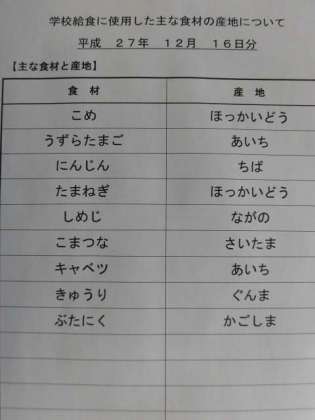 学校給食に使用した主な食材の産地について
平成 27年 12月 16日分
【主な食材と産地】
食 材 産 地
こめ ほっかいどう
うずらたまご あいち
にんじん ちば
たまねぎ ほっかいどう
しめじ ながの
こまつな さいたま
キャベツ あいち
きゅうり ぐんま
ぶたにく かごしま